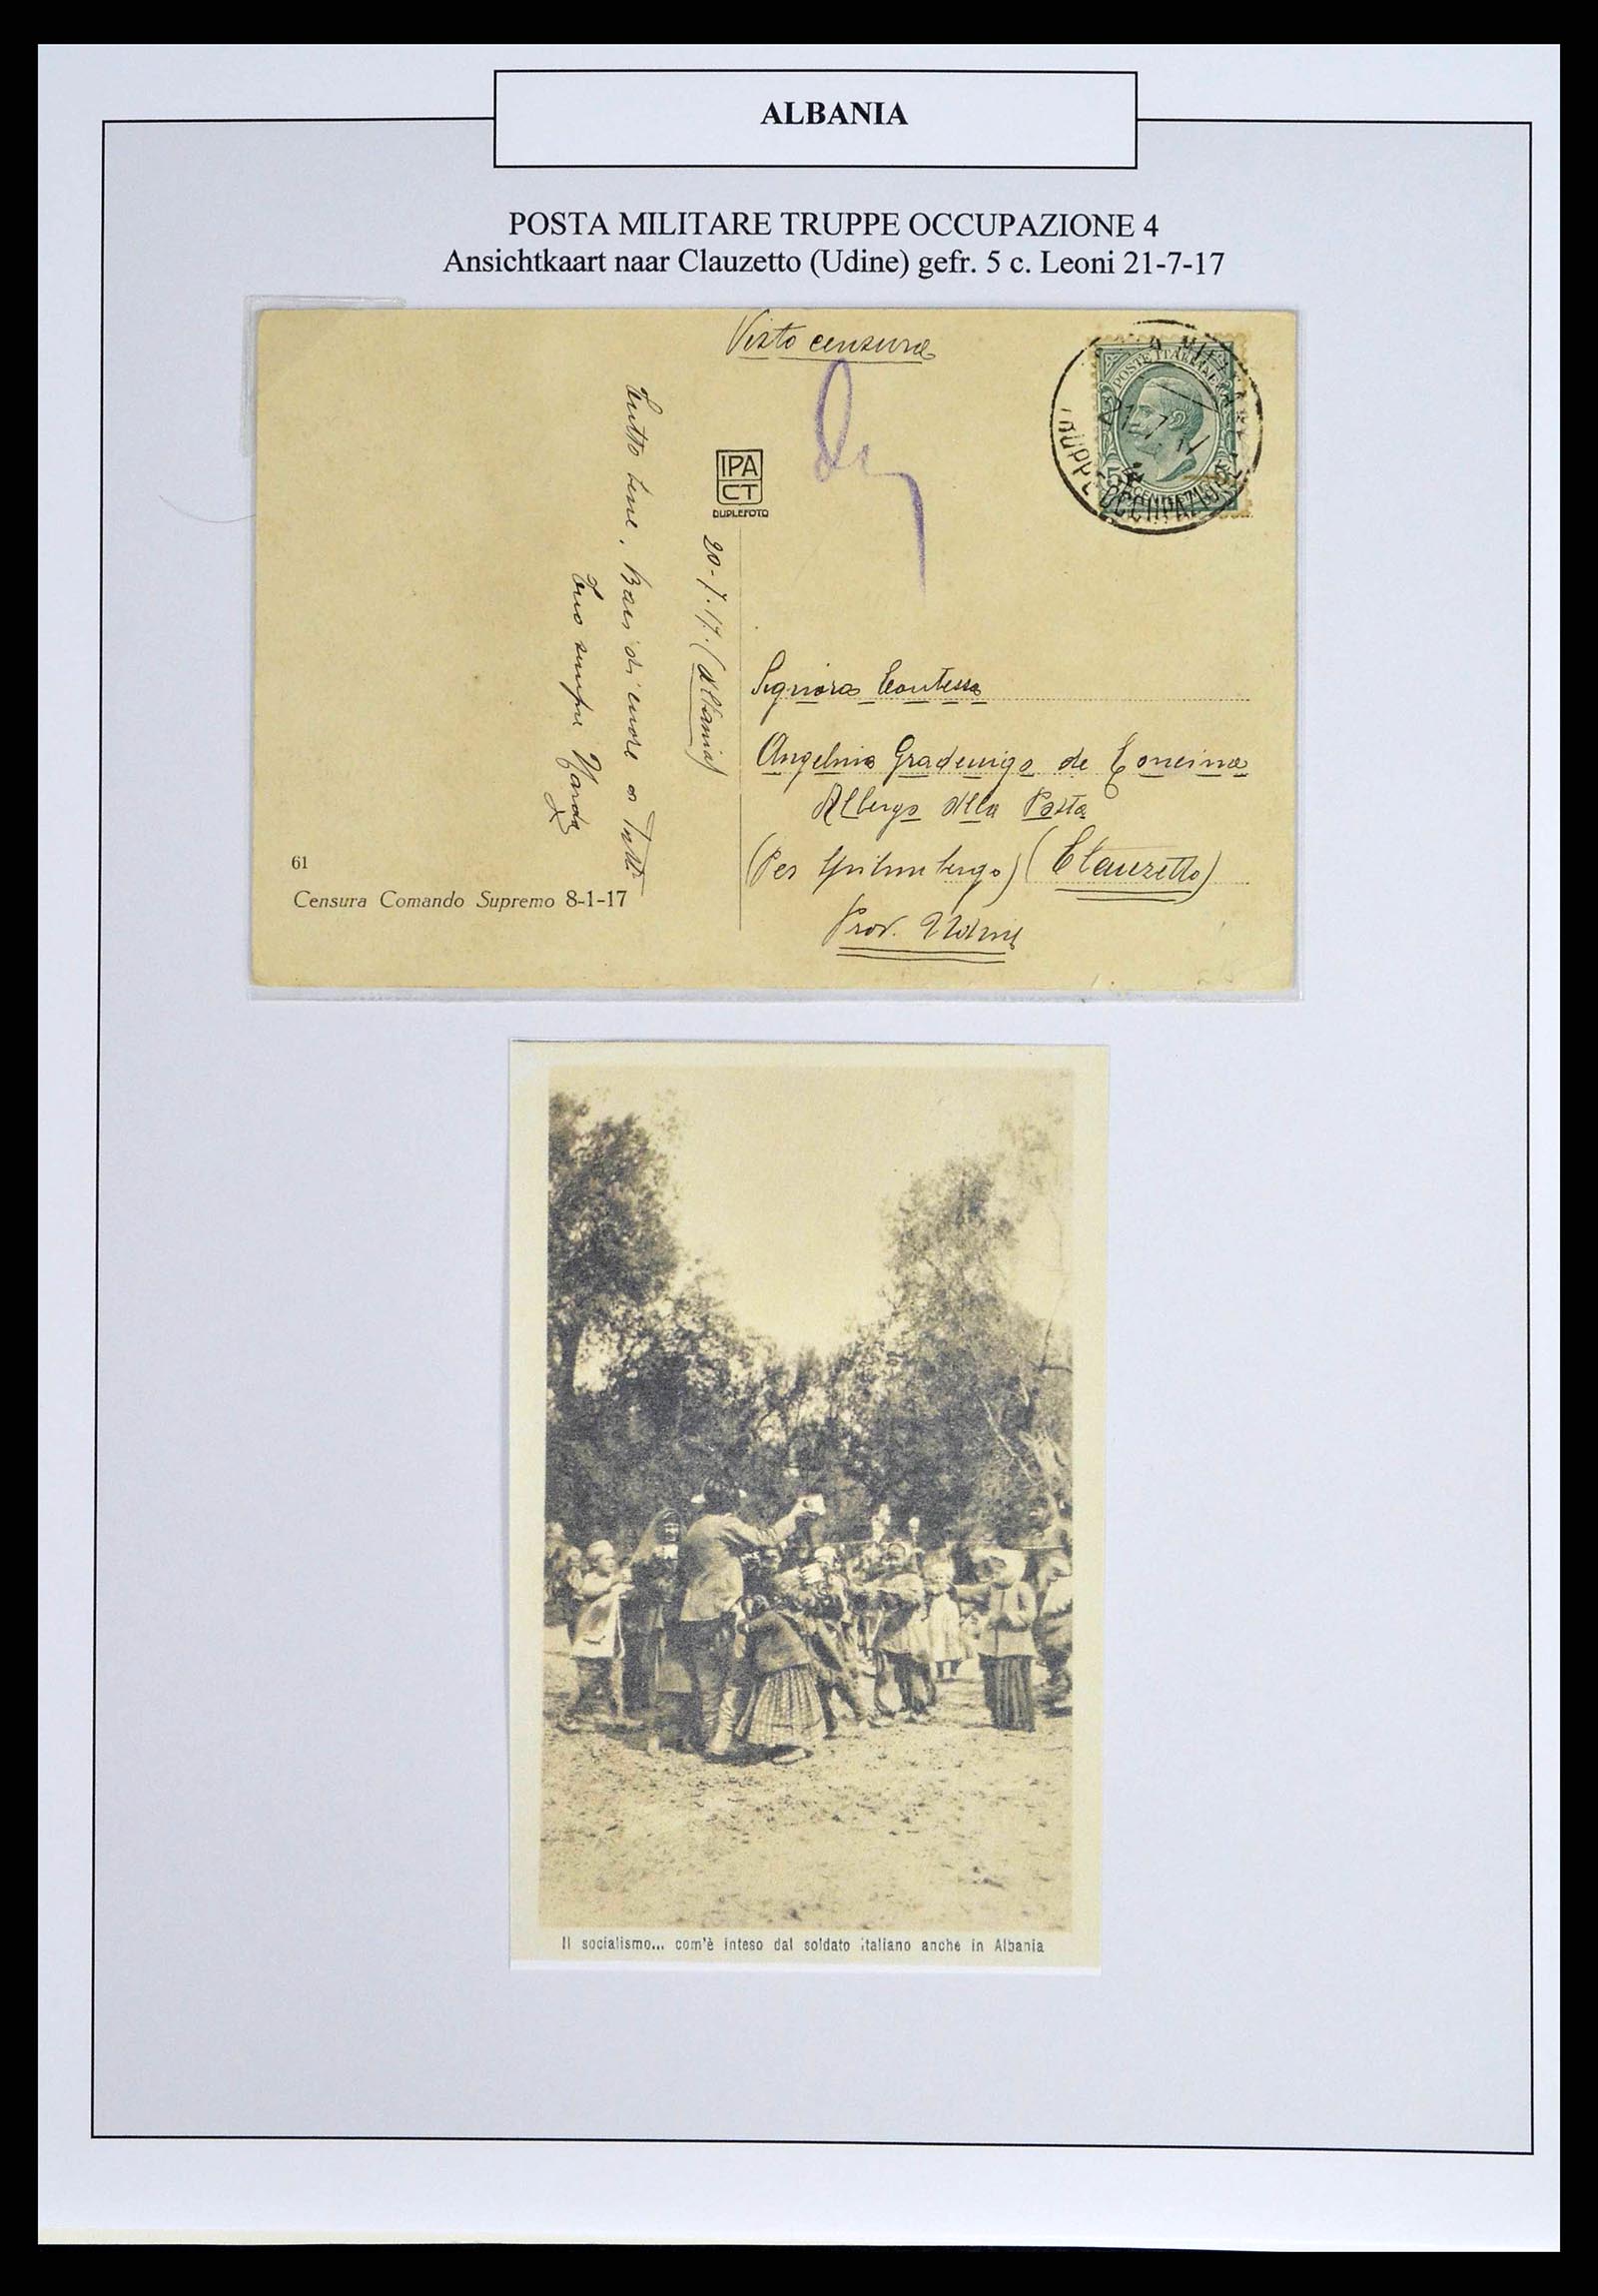 ALBANIA
POSTA MILITARE TRUPPE OCCUPAZIONE 4
Ansichtkaart naar Clauzetto (Udine) gefr. 5 c. Leoni 21-7-17
Visto censura
POSTE ITALIANE
TRUPPE OCCUPAZIONE
IPA
CT
DUPLEFOTO
20-7-17. (Albania)
Tutto bene. Baci di cuore a Tutti
Tuo sempre
Signora Contessa
Angelina Gradenigo de Concina
Albergo alla Posta
(Per Spilimbergo) (Clauzetto)
Prov. Udine
61
Censura Comando Supremo 8-1-17
Il socialismo... com'è inteso dal soldato italiano anche in Albania